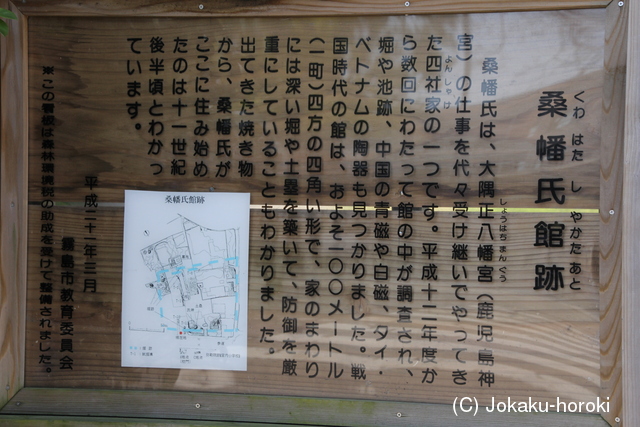 桑幡氏館跡
くわ はた し やかた あと
桑幡氏は、大隅正八幡宮（鹿児島神
しょうはちまんぐう
宮）の仕事を代々受け継いでやってき
た四社家の一つです。平成十二年度か
よんしゃけ
ら数回にわたって館の中が調査され、
堀や池跡、中国の青磁や白磁、タイ・
ベトナムの陶器も見つかりました。戦
国時代の館は、およそ一〇〇メートル
（一町）四方の四角い形で、家のまわり
には深い堀や土塁を築いて、防御を厳
重にしていることもわかりました。
出てきた焼き物
から、桑幡氏が
ここに住み始め
たのは十一世紀
後半頃とわかっ
ています。
平成二十一年三月
霧島市教育委員会
※この看板は森林環境税の助成を受けて整備されました。
桑幡氏館跡
(C) Jokaku-horoki